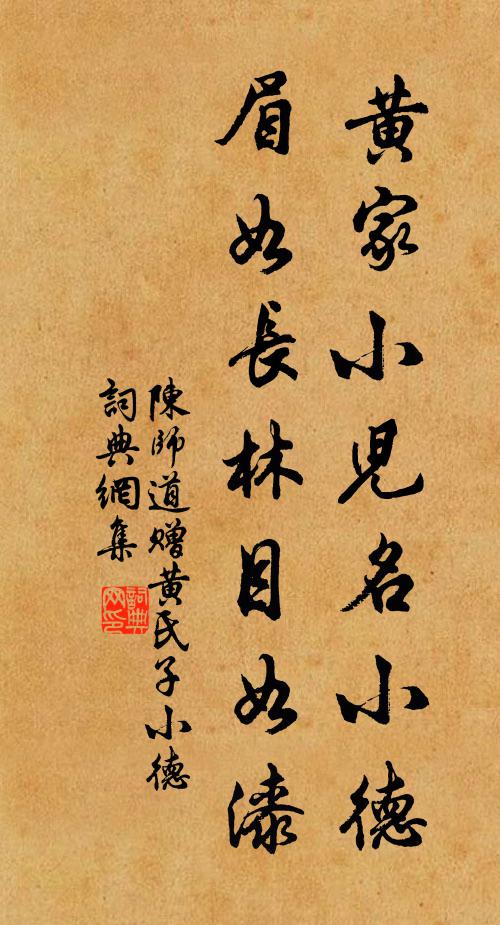 黄家小児名小德
眉如長林目如漆
陳師道贈黄氏子小德
詞典網集
詞典網印